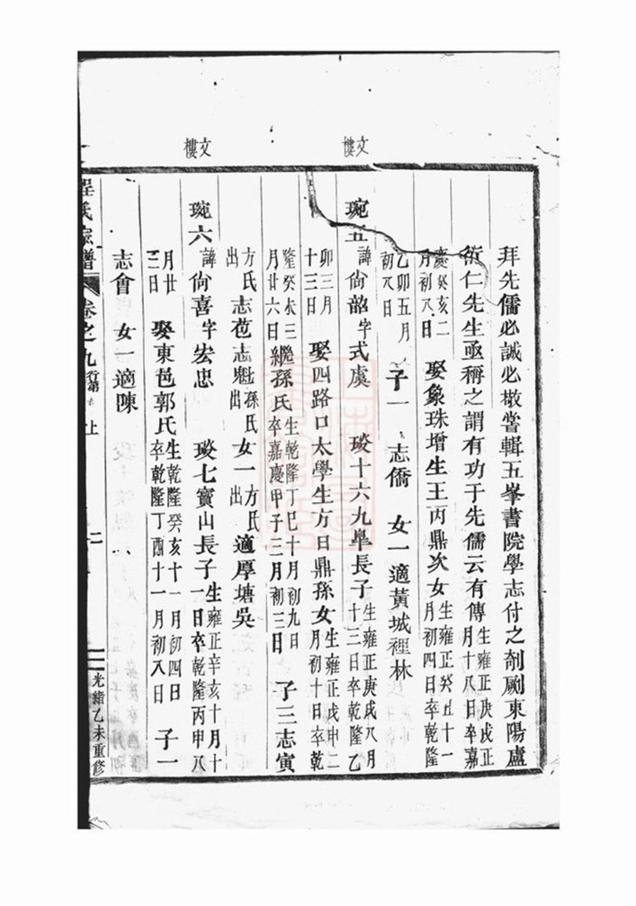 拜先儒必誠必敬嘗輯五峯書院學志付之剞劂東陽盧
衒仁先生亟稱之謂有功于先儒云有傳生雍正庚戌正月十八日卒嘉
慶癸亥二月初八日 娶象珠增生王丙鼎次女生雍正癸丑十一月初四日卒乾隆
乙卯五月初八日 子一 志僑 女一適黃城裡林
文樓
琬五 諱尙韶字式虞 琰十六九臯長子生雍正庚戌八月十三日卒乾隆乙
卯三月十三日 娶四路口太學生方日鼎孫女生雍正戊申二月初十日卒乾
隆癸未三月廿六日 繼孫氏生乾隆丁巳十月初九日卒嘉慶甲子三月初三日 子三志寅
方氏出 志苞志魁孫氏出 女一方氏出 適厚塘吳
文樓
琬六 諱尙喜字宏忠 琰七寶山長子生雍正辛亥十月十一日卒乾隆丙申八
月廿三日 娶東邑郭氏生乾隆癸亥十一月初四日卒乾隆丁酉十一月初八日 子一
志會 女一適陳
氏宗譜 卷之九 行第 上 二 光緒乙未重修